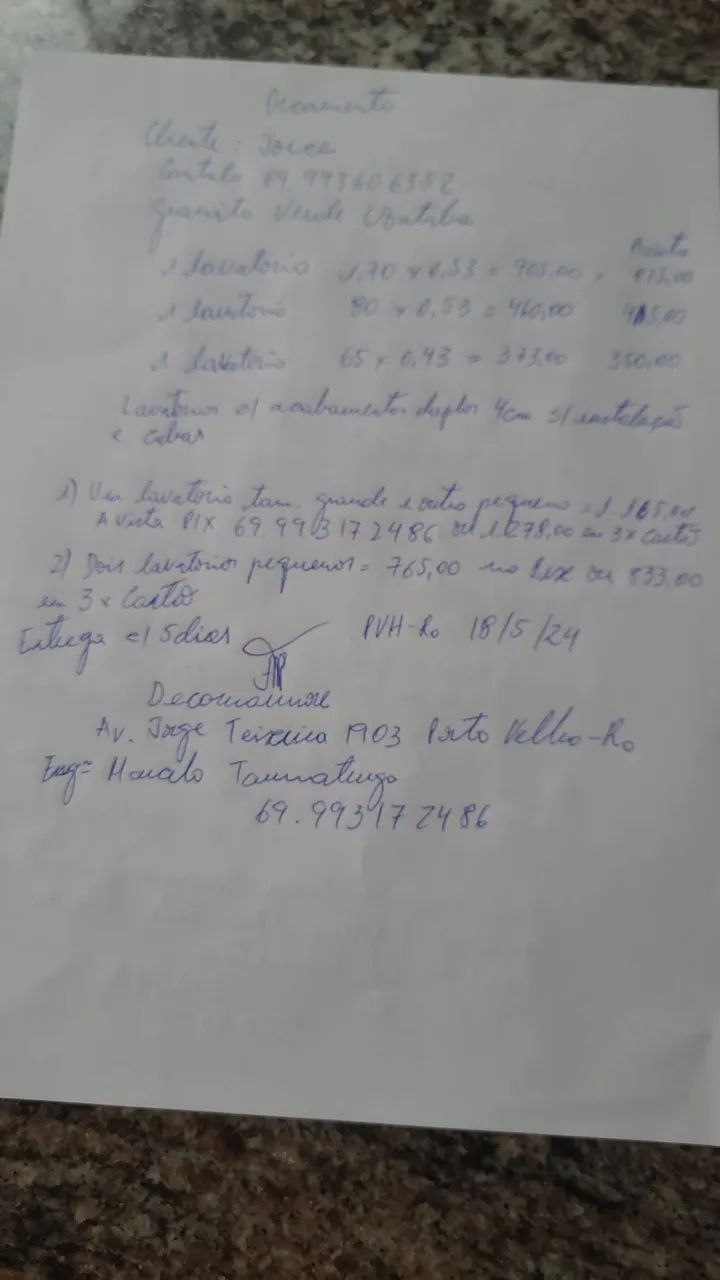 Orcamento
Cliente: Joice
Contato 69 993606352
Granito Verde Ubatuba
Avista
1 lavatório 1,70 x 0,53 = 905,00 = 815,00
1 lavatorio 80 x 0,53 = 460,00 415,00
1 lavatorio 65 x 0,43 = 373,00 350,00
Lavatorios c/ acabamentos duplos 4cm s/ instalação
e cubas
1) Um lavatório tam. grande e outro pequeno = 1.165,00
A vista PIX 69.993172486 ou 1.278,00 em 3x Cartão
2) Dois lavatorios pequenos = 765,00 no Pix ou 833,00
em 3x Cartão
Entrega c/ 5 dias PVH-Ro 18/5/24
Av. Jorge Teixeira 1903 Porto Velho-Ro
69.993172486